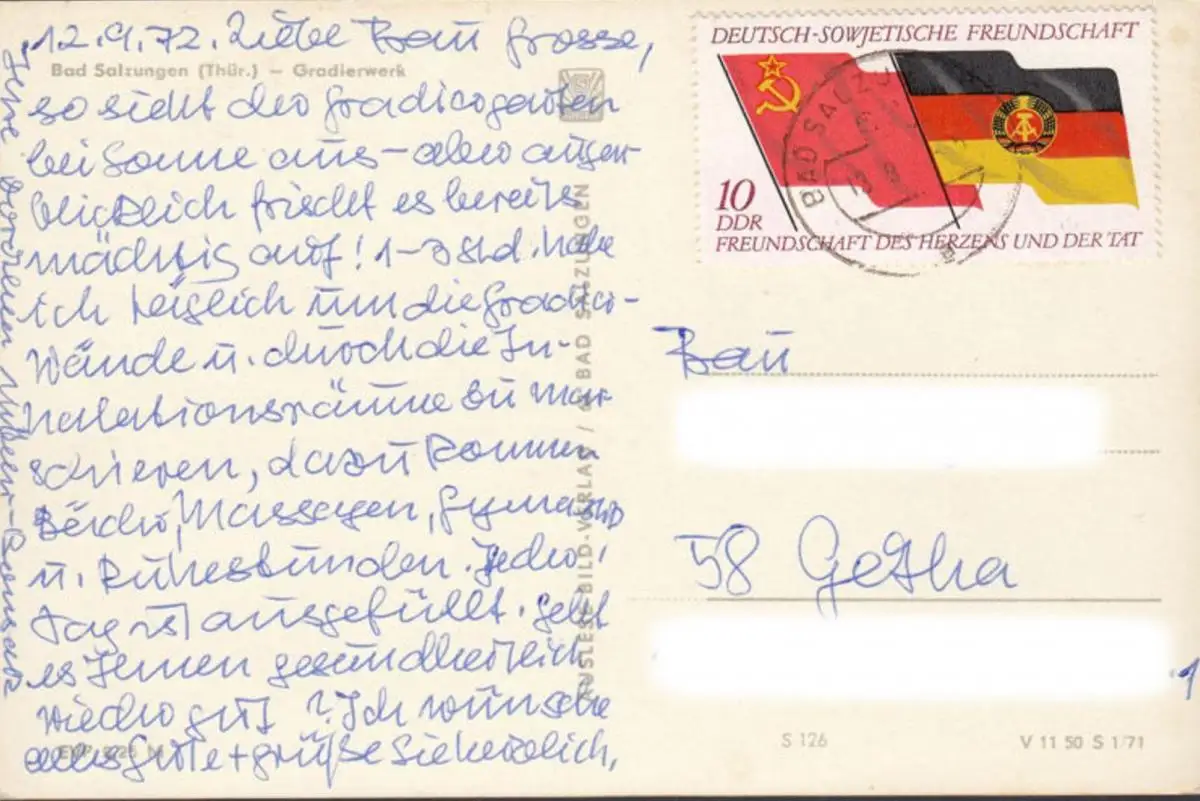 12.9.72. Liebe Frau Grosse,
Bad Salzungen (Thür.) — Gradierwerk
so sieht der Gradiergarten
bei Sonne aus – aber augen-
blicklich frischt es bereits
mächtig auf! 1–3 Std. habe
ich täglich um die Gradier-
Wände u. durch die In-
halationsräume zu mar-
schieren, dazu kommen
Bäder, Massagen, Gymnastik
u. Ruhestunden. Jeder
Tag ist ausgefüllt. Geht
es Ihnen gesundheitlich
wieder gut? Ich wünsche
alles Gute + grüße Sie herzlich,
Ihre
AUSLESE-BILD-VERLAG / BAD SALZUNGEN
DEUTSCH-SOWJETISCHE FREUNDSCHAFT
10
DDR
FREUNDSCHAFT DES HERZENS UND DER TAT
BAD SALZU
Frau
58 Gotha
S 126
V 11 50 S 1/71